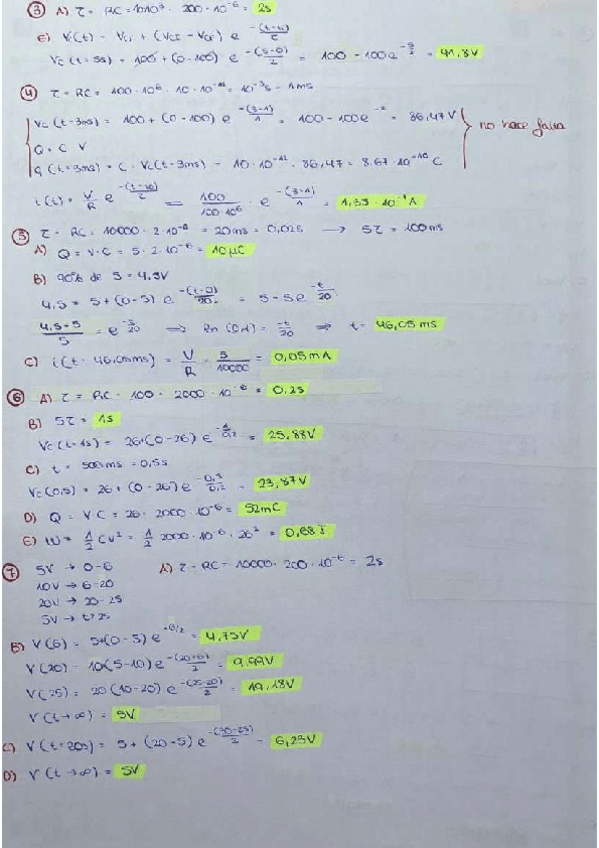 ③ A) τ = RC = 10·10³ · 200·10⁻⁶ = 2s
E) Vc(t) = Vcf + (Vci - Vcf) e^(-(t-t₀)/τ)
Vc(t=5s) = 100 + (0-100) e^(-(5-0)/2) = 100 - 100e^(-5/2) = 91,8V
④ τ = RC = 100·10⁶ · 10·10⁻¹² = 10⁻³s = 1ms
Vc(t=3ms) = 100 + (0-100) e^(-(3-1)/1) = 100 - 100e⁻² = 86,47V
Q = C V
q(t=3ms) = C · Vc(t=3ms) = 10·10⁻¹² · 86,47 = 8,67·10⁻¹⁰ C
no hace falta
i(t) = V/R e^(-(t-t₀)/τ) = 100/(100·10⁶) · e^(-(3-1)/1) = 1,35·10⁻⁷A
⑤ τ = RC = 10000 · 2·10⁻⁶ = 20ms = 0,02s → 5τ = 100ms
A) Q = V·C = 5·2·10⁻⁶ = 10μC
B) 90% de 5 = 4,5V
4,5 = 5 + (0-5) e^(-(t-0)/20) = 5 - 5e^(-t/20)
(4,5-5)/5 = e^(-t/20) ⇒ ln(0,1) = -t/20 ⇒ t = 46,05ms
C) i(t=46,05ms) = V/R = 5/10000 = 0,05mA
⑥ A) τ = RC = 100 · 2000·10⁻⁶ = 0,2s
B) 5τ = 1s
Vc(t=1s) = 26+(0-26) e^(-1/0,2) = 25,88V
C) t = 500ms = 0,5s
Vc(0,5) = 26 + (0-26) e^(-0,5/0,2) = 23,87V
D) Q = V C = 26 · 2000·10⁻⁶ = 52mC
E) W = 1/2 CV² = 1/2 2000·10⁻⁶ · 26² = 0,68J
⑦ 5V → 0-6 A) τ = RC = 10000 · 200·10⁻⁶ = 2s
10V → 6-20
20V → 20-25
5V → t>25
B) V(6) = 5+(0-5) e^(-6/2) = 4,75V
V(20) = 10(5-10) e^(-(20-6)/2) = 9,99V
V(25) = 20(10-20) e^(-(25-20)/2) = 19,18V
V(t→∞) = 5V
C) V(t=30s) = 5 + (20-5) e^(-(30-25)/2) = 6,23V
D) V(t→∞) = 5V